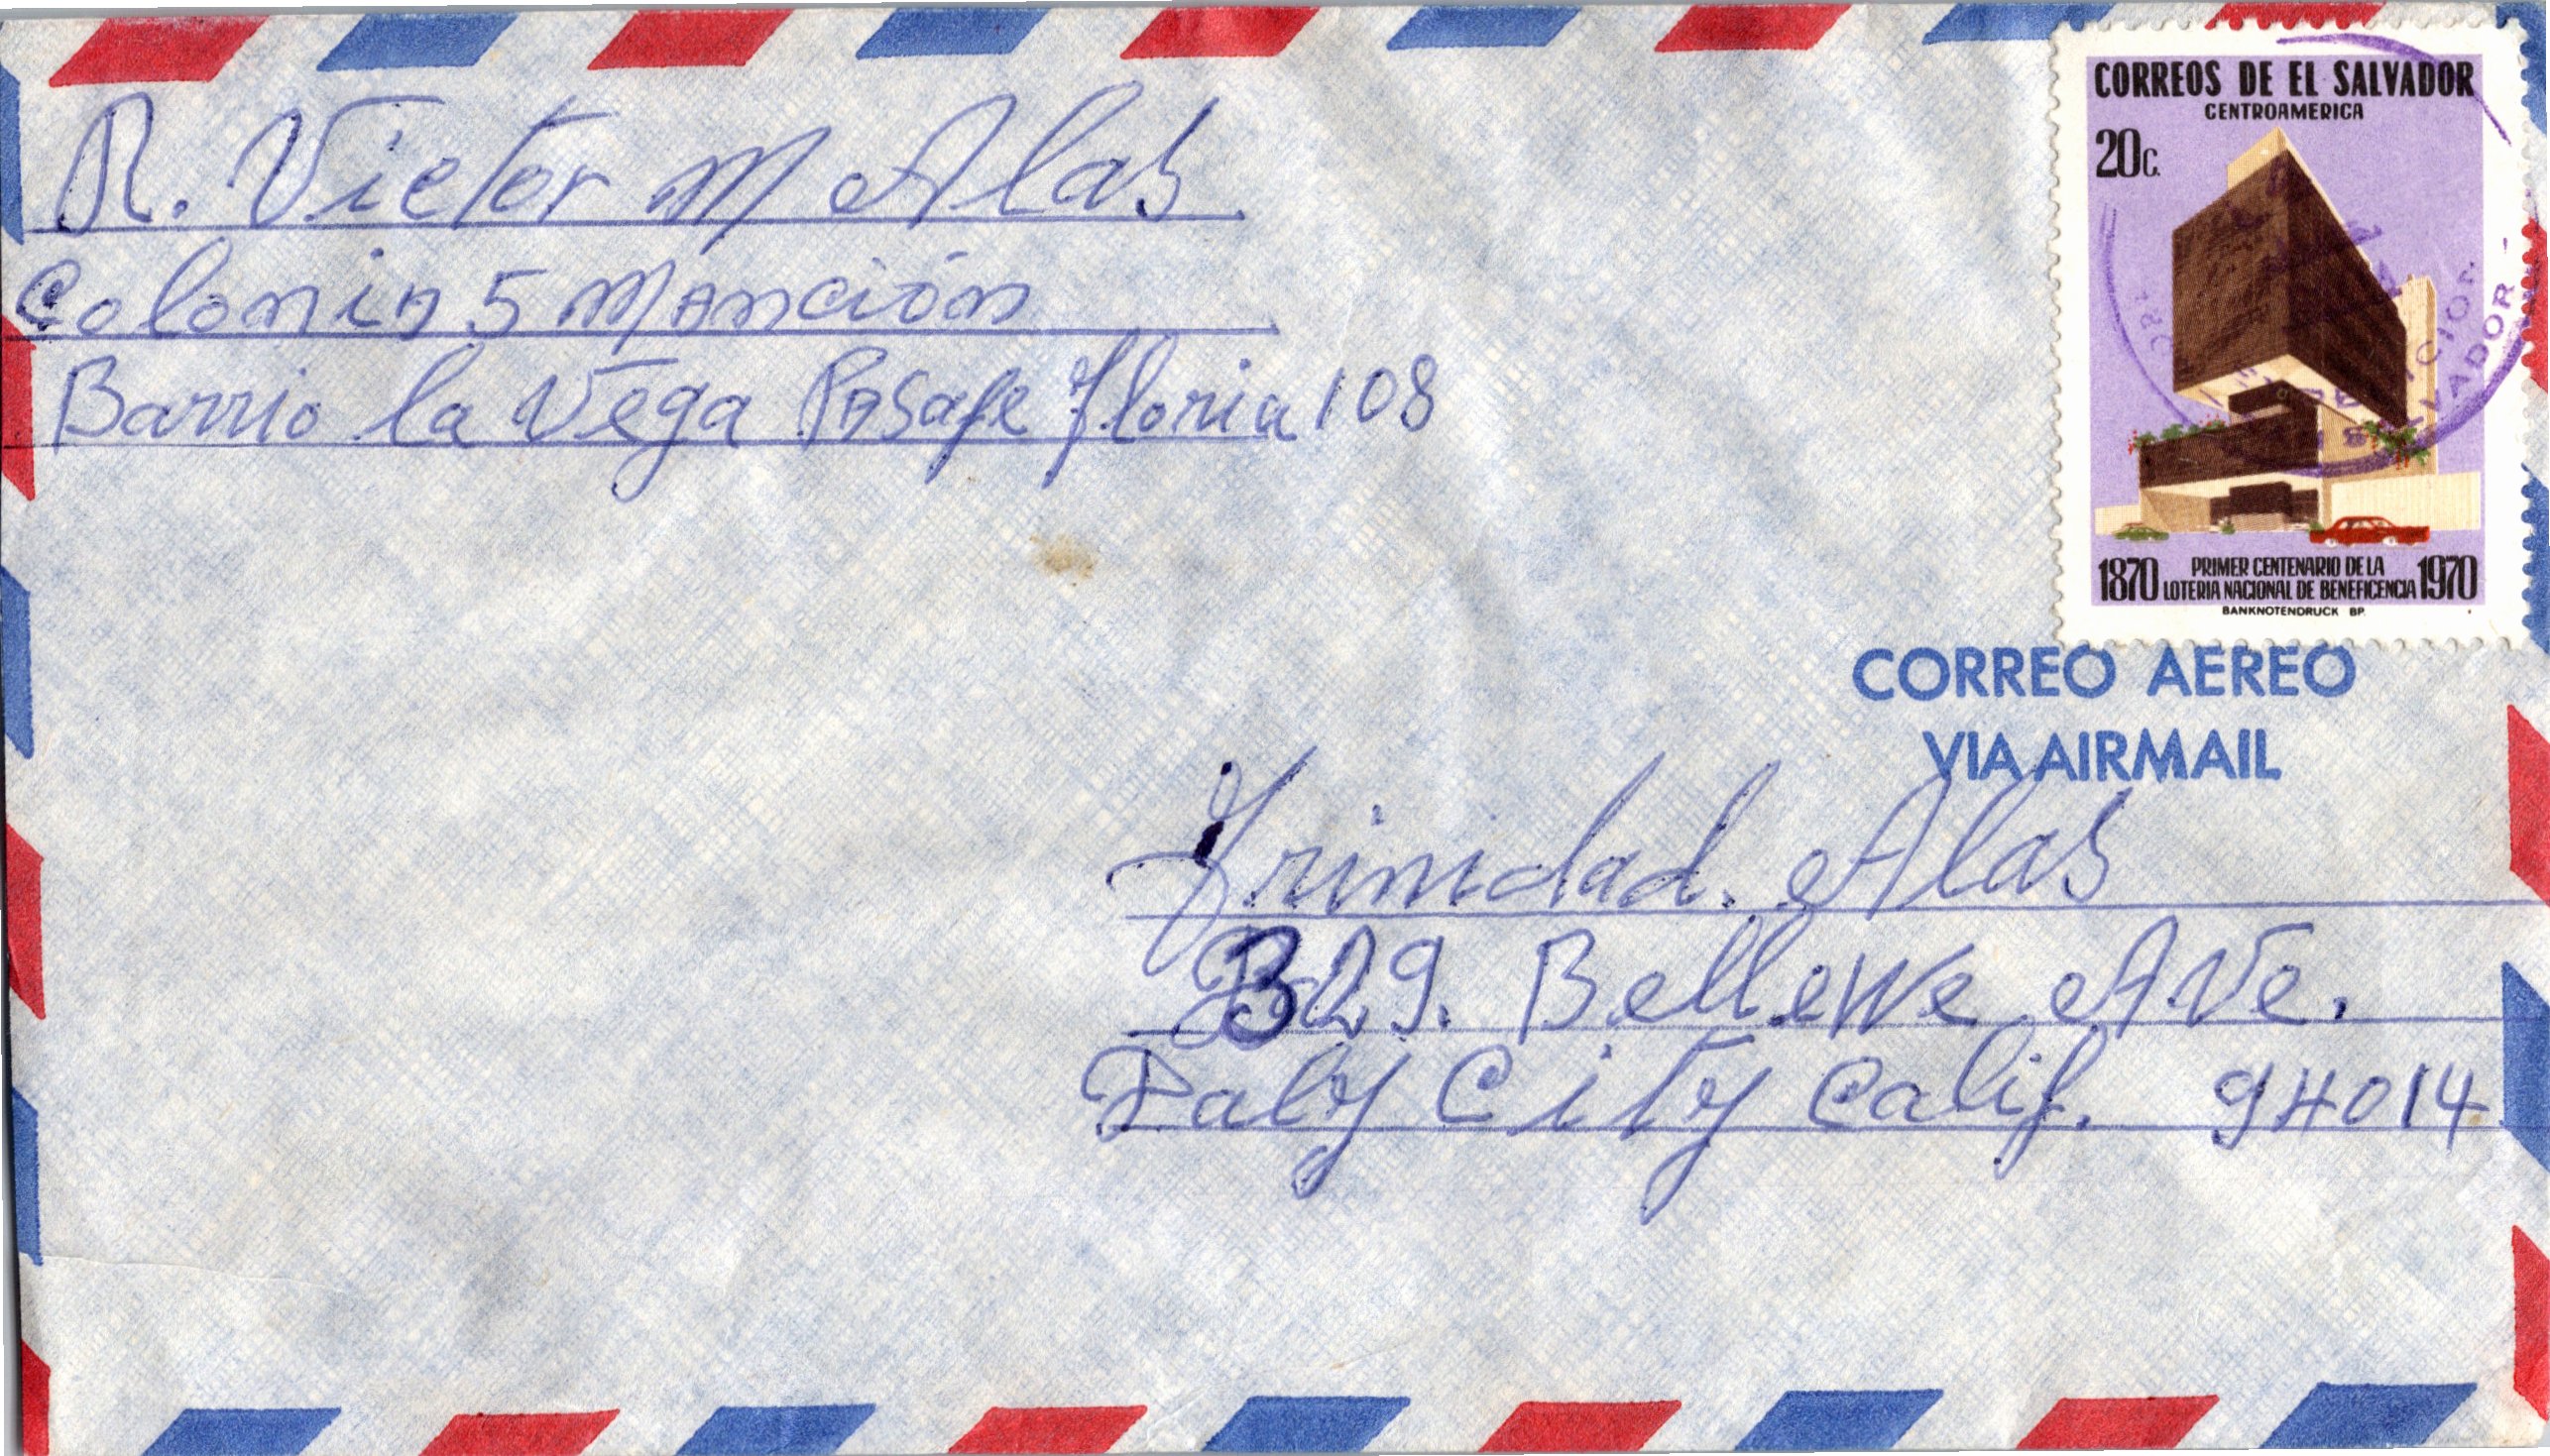 R. Victor M Alas
Colonia 5 Manción
Barrio la Vega Pasaje Floria 108
CORREOS DE EL SALVADOR
CENTROAMERICA
20c.
1870 PRIMER CENTENARIO DE LA LOTERIA NACIONAL DE BENEFICENCIA 1970
BANKNOTENDRUCK BP.
CORREO AEREO
VIA AIRMAIL
Trinidad. Alas
329. Bellewe Ave.
Daly City Calif. 94014